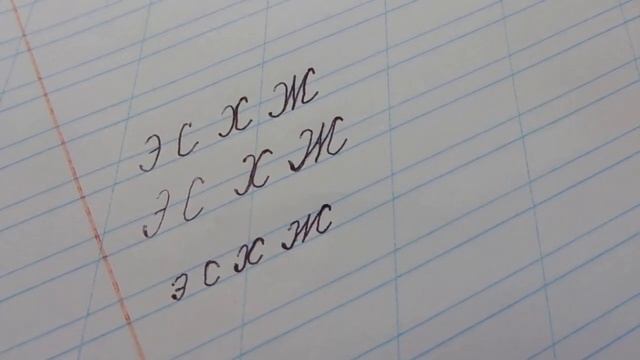 Э С Х Ж
Э С Х Ж
э с х ж